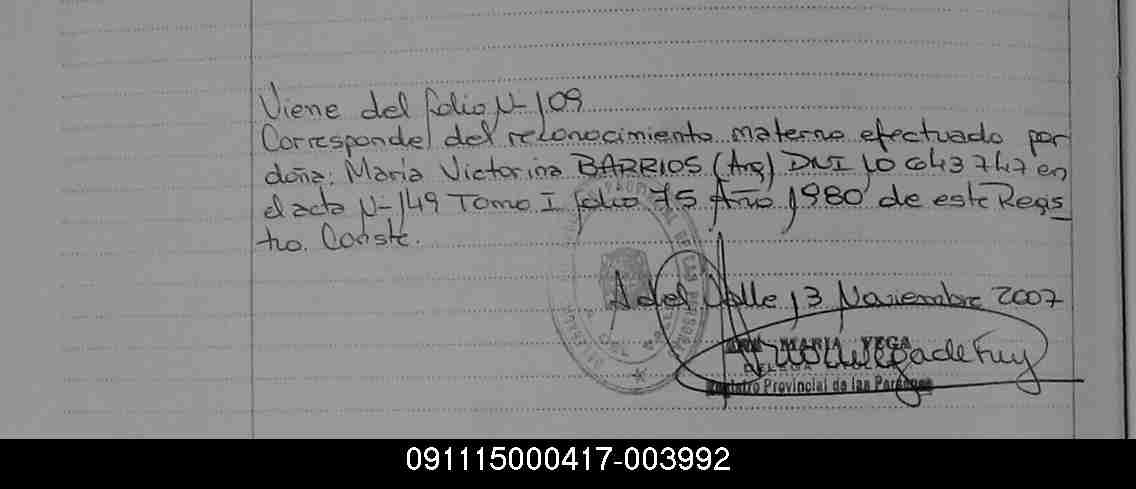 Viene del folio N- 109
Corresponde del reconocimiento materno efectuado por
doña: María Victorina BARRIOS (Arg) DNI 10 643 747 en
el acta N- 149 Tomo I folio 75 Año 1980 de este Regis_
tro. Conste.
A del Valle 13 Noviembre 2007
MARIA VEGA
Registro Provincial de las Personas
091115000417-003992